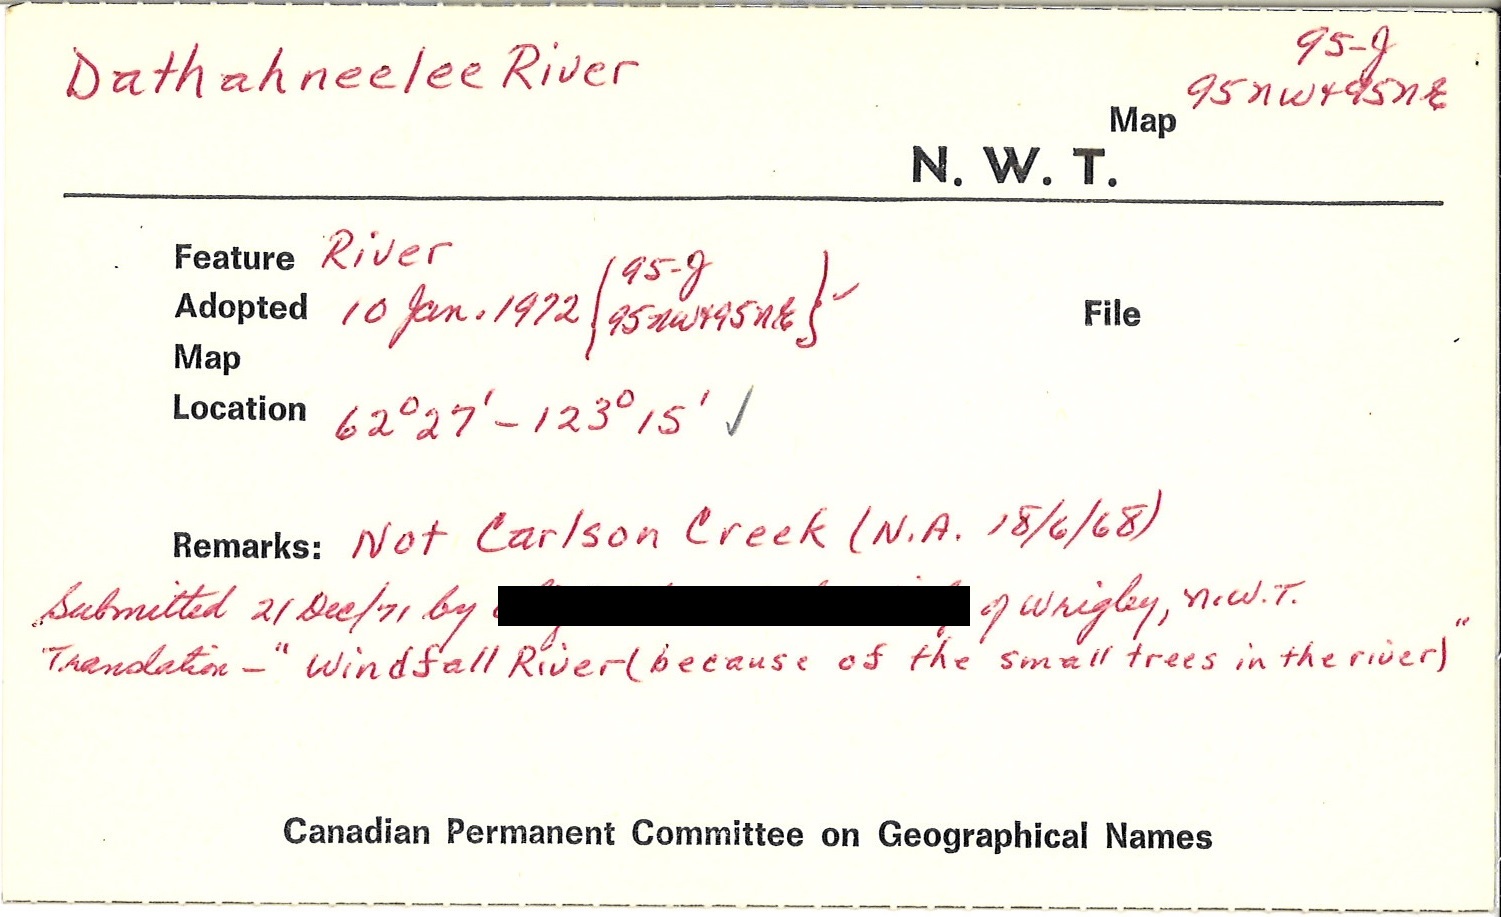 Dathahneelee River
95-J
95NW+95NE
Map
N. W. T.
Feature River
Adopted 10 Jan. 1972 {95-J
95NW+95NE} ✓
File
Map
Location 62°27'-123°15' ✓
Remarks: Not Carlson Creek (N.A. 18/6/68)
Submitted 21 Dec/71 by of Wrigley, N.W.T.
Translation - "Windfall River (because of the small trees in the river)"
Canadian Permanent Committee on Geographical Names